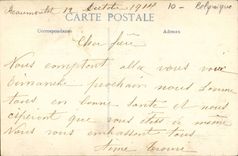 Beaumontet 12 Octobre 1914 10 - Belgique
CARTE POSTALE
Correspondance
Adresse
Cher frère
Nous comptont allé vous voir
Dimanche prochain nous somme
tous en bonne santé et nous
espéront que vous êtes de même
Nous vous embrassent tous
Aimé